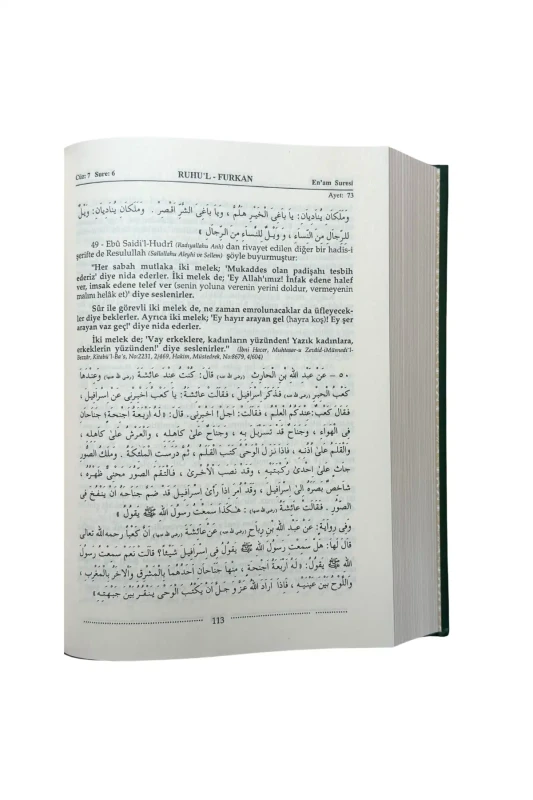 Cüz: 7 Sure: 6 RUHU'L - FURKAN En'am Suresi
Ayet: 73
وَمَلَكَانِ يُنَادِيَانِ: يَا بَاغِيَ الْخَيْرِ هَلُمَّ ، وَيَا بَاغِيَ الشَّرِّ أَقْصِرْ . وَمَلَكَانِ يُنَادِيَانِ: وَيْلٌ
لِلرِّجَالِ مِنَ النِّسَاءِ ، وَ وَيْلٌ لِلنِّسَاءِ مِنَ الرِّجَالِ »
49 - Ebû Saidi'l-Hudrî (Radıyallahu Anh) dan rivayet edilen diğer bir hadis-i
şerifte de Resulullah (Sallallahu Aleyhi ve Sellem) şöyle buyurmuştur:
"Her sabah mutlaka iki melek; 'Mukaddes olan padişahı tesbih
ederiz' diye nida ederler. İki melek de; 'Ey Allah'ımız! İnfak edene halef
ver, imsak edene telef ver (senin yoluna verenin yerini doldur, vermeyenin
malını helâk et)' diye seslenirler.
Sûr ile görevli iki melek de, ne zaman emrolunacaklar da üfleyecek-
ler diye beklerler. Ayrıca iki melek; 'Ey hayır arayan gel (hayra koş)! Ey şer
arayan vaz geç!' diye nida ederler.
İki melek de; 'Vay erkeklere, kadınların yüzünden! Yazık kadınlara,
erkeklerin yüzünden!' diye seslenirler." (İbni Hacer, Muhtasar-u Zevâid-i
Bezzâr, Kitâbü'l-Ba's, No:2231, 2/469, Hakim, Müstedrek, No:8679, 4/604)
٥٠ - عَنْ عَبْدِ اللهِ بْنِ الْحَارِثِ قَالَ: كُنْتُ عِنْدَ عَائِشَةَ وَعِنْدَهَا
كَعْبُ الْحَبْرِ فَذَكَرَ إِسْرَافِيلَ ، فَقَالَتْ عَائِشَةُ: يَا كَعْبُ أَخْبِرْنِي عَنْ إِسْرَافِيلَ
فَقَالَ كَعْبٌ: عِنْدَكُمُ الْعِلْمُ ، فَقَالَتْ: أَجَلْ! أَخْبِرْنِي. قَالَ: «لَهُ أَرْبَعَةُ أَجْنِحَةٍ: جَنَاحَانِ
فِي الْهَوَاءِ ، وَجَنَاحٌ قَدْ تَسَرْبَلَ بِهِ ، وَجَنَاحٌ عَلَى كَاهِلِهِ ، وَالْعَرْشُ عَلَى كَاهِلِهِ ،
وَالْقَلَمُ عَلَى أُذُنِهِ ، فَإِذَا نَزَلَ الْوَحْيُ كَتَبَ الْقَلَمُ ، ثُمَّ دَرَسَتِ الْمَلَئِكَةُ . وَمَلَكُ الصُّورِ
جَاثٍ عَلَى إِحْدَى رُكْبَتَيْهِ ، وَقَدْ نَصَبَ الْأُخْرَى ، فَالْتَقَمَ الصُّورَ مَحْنِيٌّ ظَهْرُهُ ،
شَاخِصٌ بَصَرُهُ إِلَى إِسْرَافِيلَ ، وَقَدْ أُمِرَ إِذَا رَأَى إِسْرَافِيلَ قَدْ ضَمَّ جَنَاحَهُ أَنْ يَنْفُخَ فِي
الصُّورِ . فَقَالَتْ عَائِشَةُ : هٰكَذَا سَمِعْتُ رَسُولَ اللهِ ﷺ يَقُولُ »
وَفِي رِوَايَةٍ: عَنْ عَبْدِ اللهِ بْنِ رَبَاحٍ عَنْ عَائِشَةَ أَنَّ كَعْبًا رحمه الله تعالى
قَالَ لَهَا: هَلْ سَمِعْتِ رَسُولَ اللهِ ﷺ يَقُولُ فِي إِسْرَافِيلَ شَيْئًا؟ قَالَتْ نَعَمْ سَمِعْتُ رَسُولَ
اللهِ ﷺ يَقُولُ: «لَهُ أَرْبَعَةُ أَجْنِحَةٍ ، مِنْهَا جَنَاحَانِ أَحَدُهُمَا بِالْمَشْرِقِ وَالْآخَرُ بِالْمَغْرِبِ ،
وَاللَّوْحُ بَيْنَ عَيْنَيْهِ ، فَإِذَا أَرَادَ اللهُ عَزَّ وَجَلَّ أَنْ يَكْتُبَ الْوَحْيَ يَنْقُرُ بَيْنَ جَبْهَتِهِ »
113